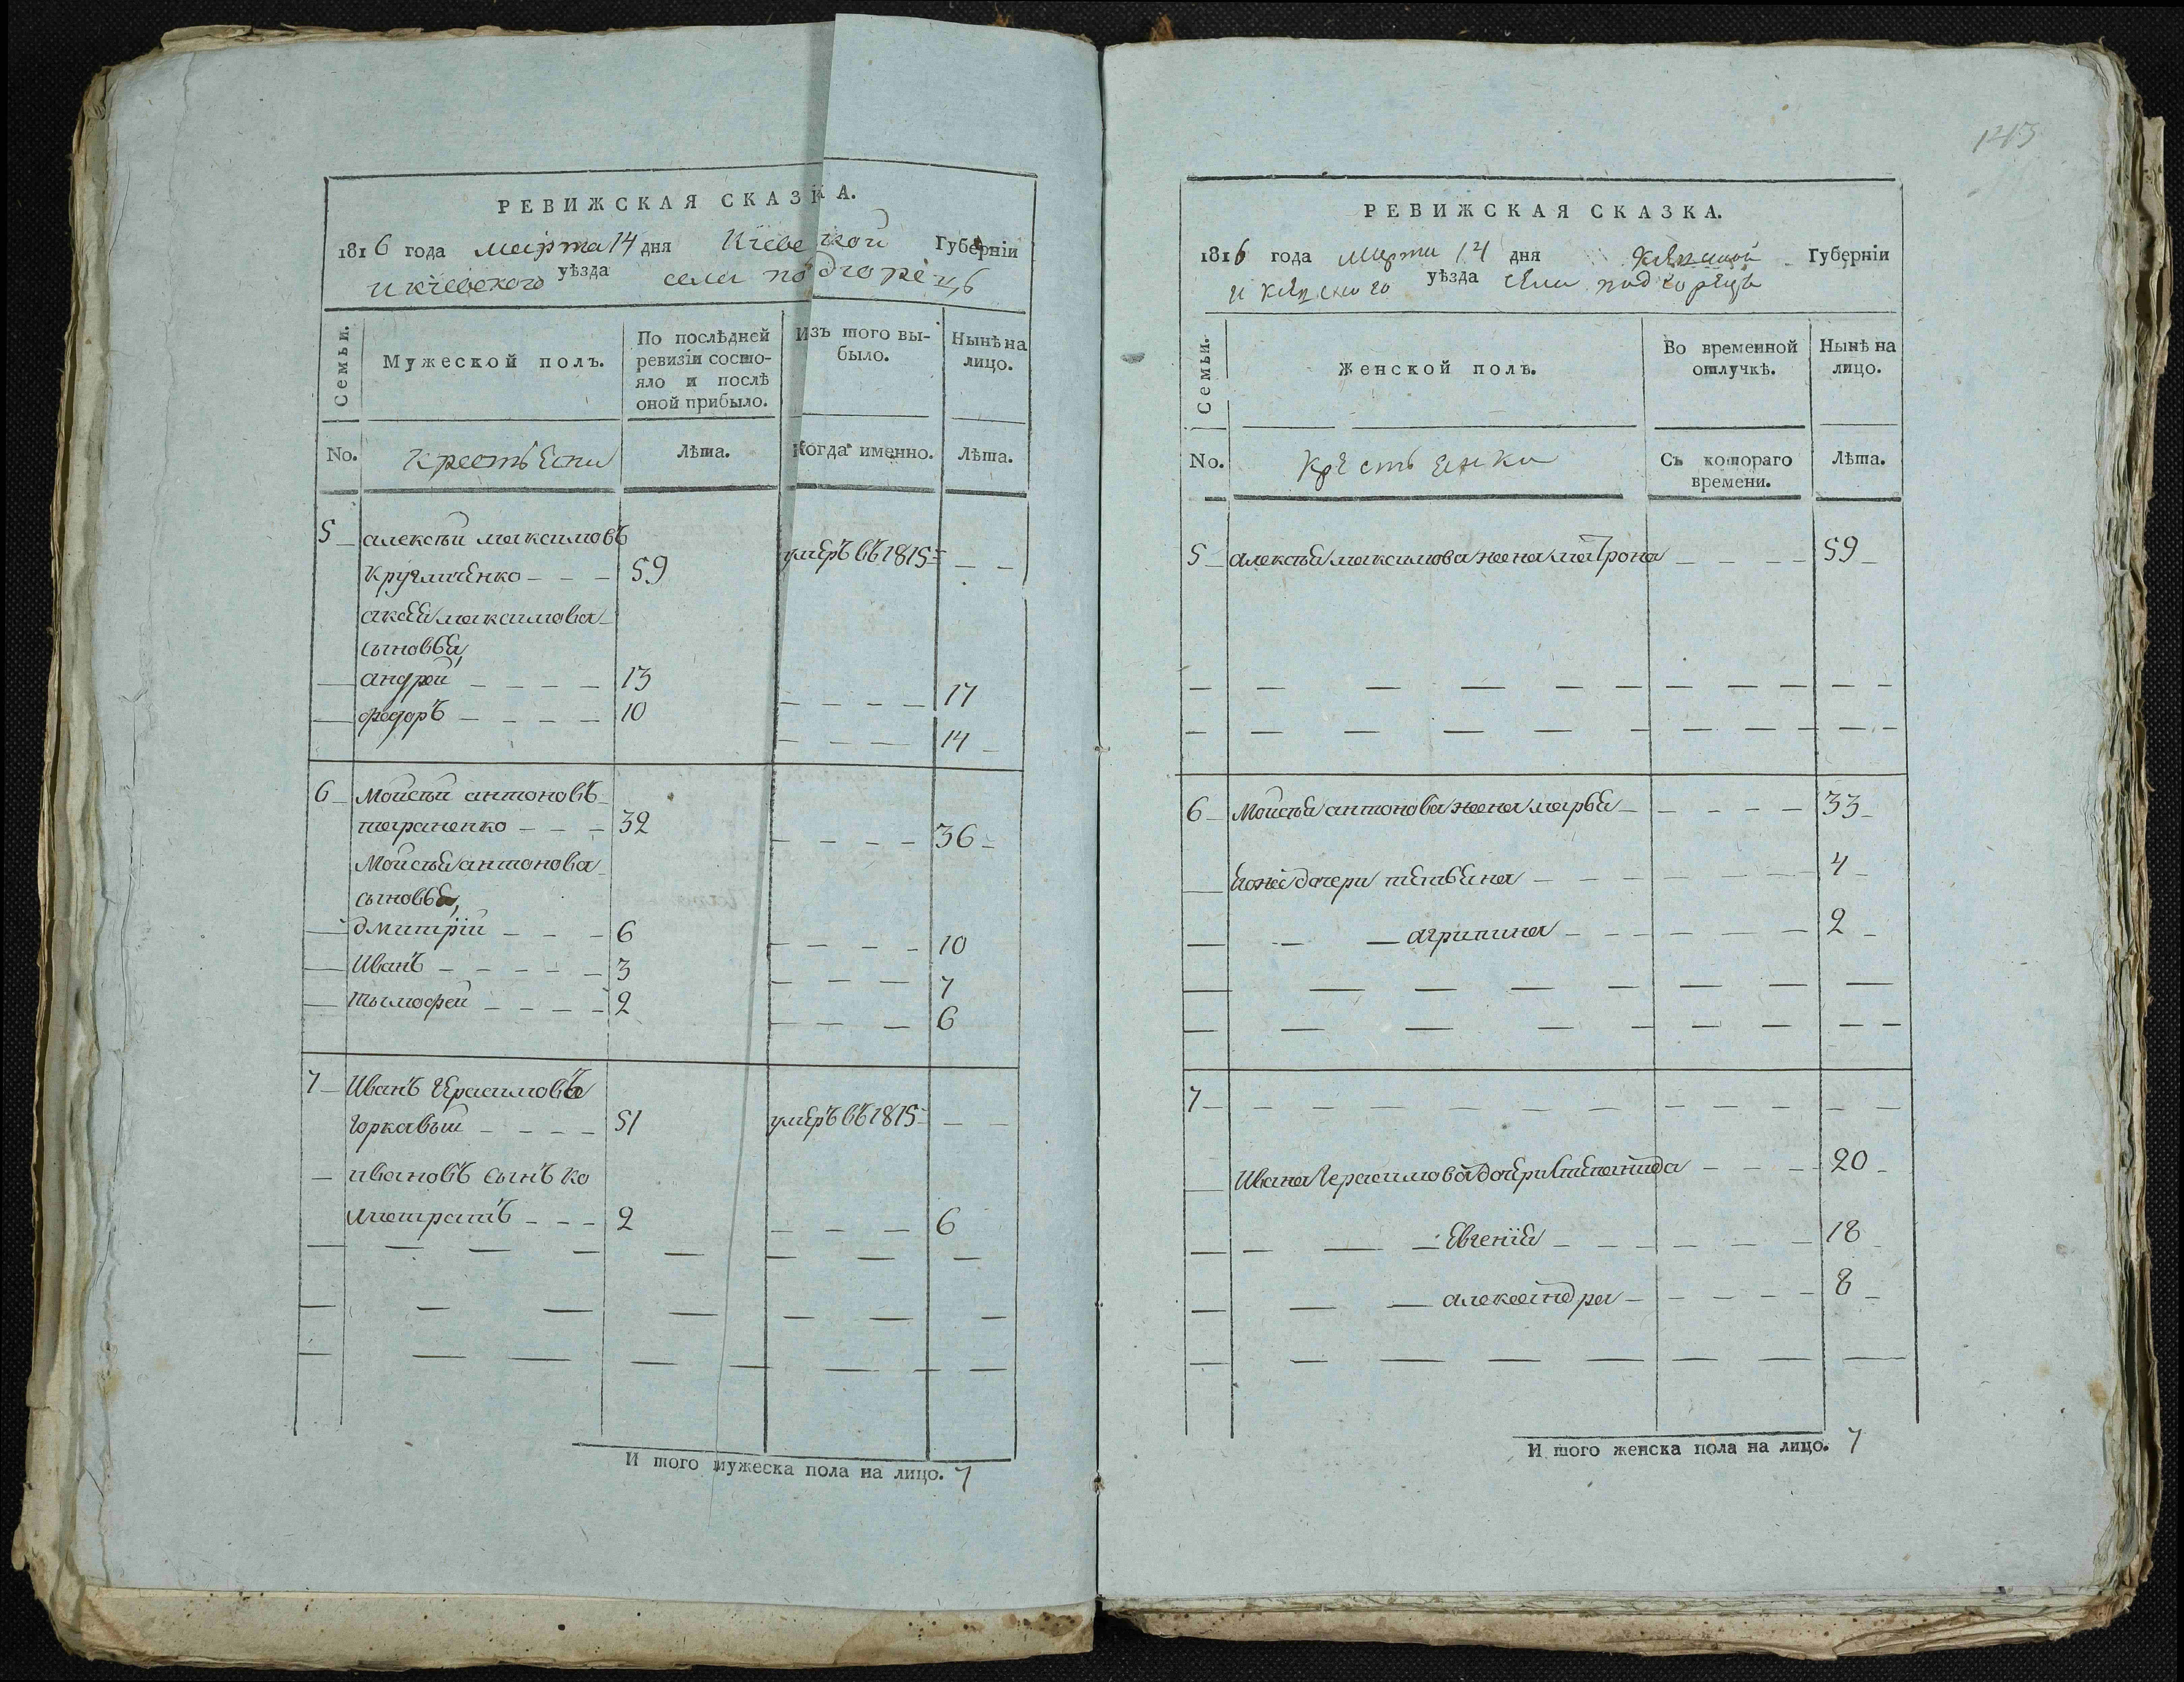 РЕВИЖСКАЯ СКАЗКА.
1816 года марта 14 дня Кіевской Губерніи
и кіевского уѣзда села подгорецъ
Семьи.
Мужеской полъ.
По послѣдней ревизіи состояло и послѣ оной прибыло.
Изъ того выбыло.
Нынѣ на лицо.
No.
Лѣта.
Когда именно.
Лѣта.
5 алексѣй максимовъ
59 умеръ въ 1815
максимова
сыновья
андрей 13 17
федоръ 10 14
6 Мойсѣй антоновъ
32 36
Мойсѣя антонова
сыновья,
дмитрій 6 10
Иванъ 3 7
тымофей 2 6
7 Иванъ Герасимовъ
51 умеръ въ 1815
ивановъ сынъ ка
листратъ 2 6
И того мужеска пола на лицо. 7
143
РЕВИЖСКАЯ СКАЗКА.
1816 года марта 14 дня Губерніи
уѣзда села подгорецъ
Семьи.
Женской полъ.
Во временной отлучкѣ.
Нынѣ на лицо.
No.
Крестьянки
Съ котораго времени.
Лѣта.
5 алексѣя максимова жена матрона 59
6 Мойсѣя антонова жена марья 33
дочери 4
агрипина 2
7
Ивана Герасимова дочери степанида 20
Евгенія 18
александра 8
И того женска пола на лицо. 7